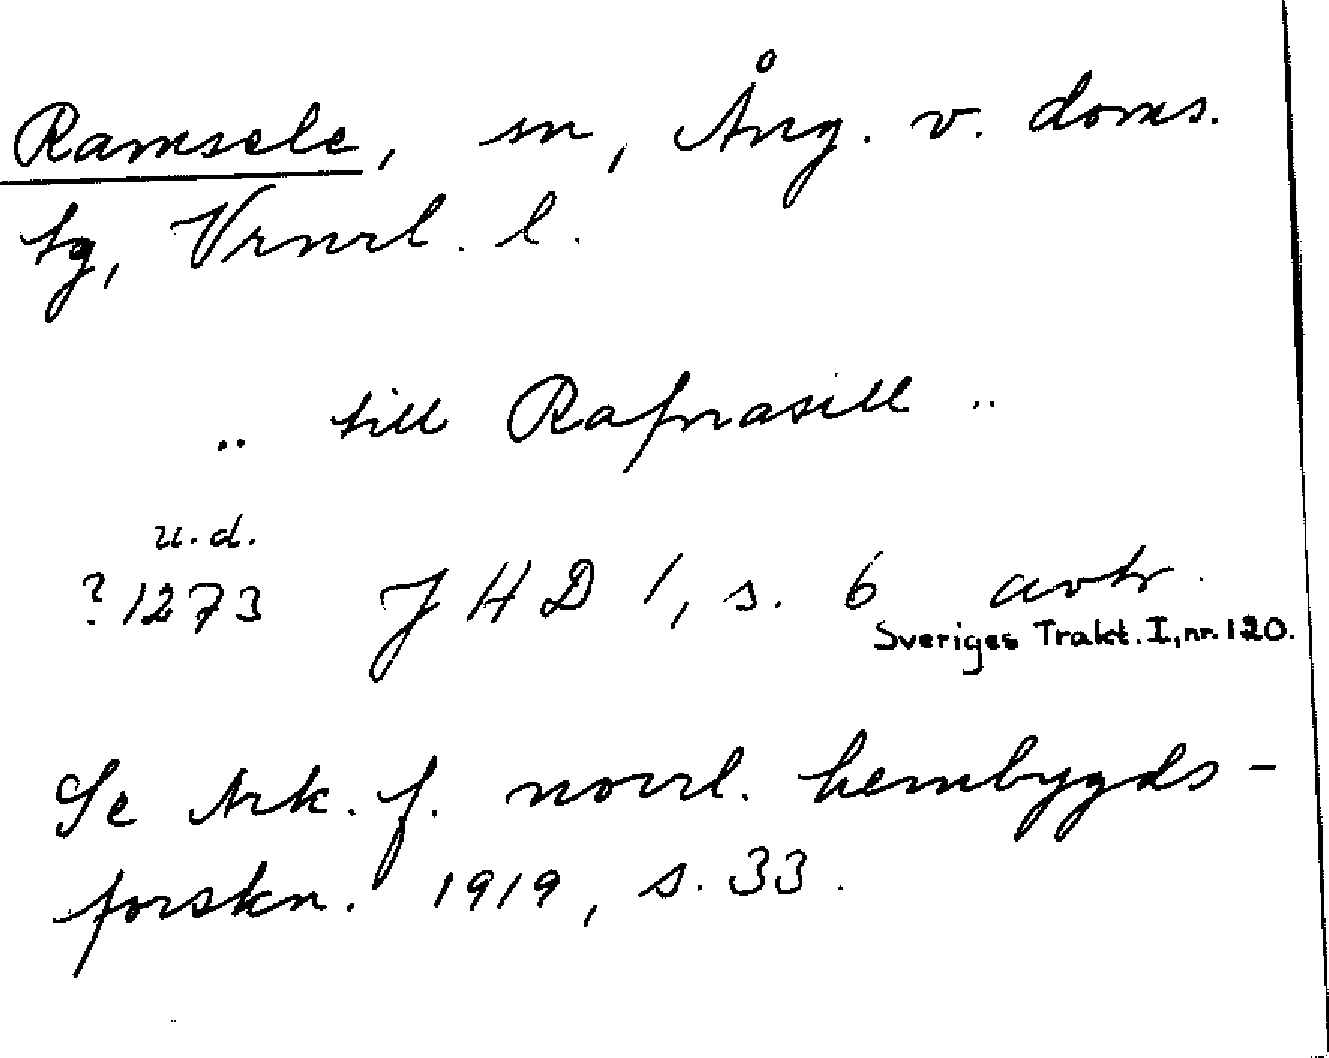 Ramsele, sn, Ång. v. doms.
tg, Vrnrl. l.
.. till Rafnasill ..
u.d.
? 1273 J H D 1, s. 6 avtr.
Sveriges Trakt. I, nr. 120.
Se Ark. f. norrl. hembygds-
forskn. 1919, s. 33.